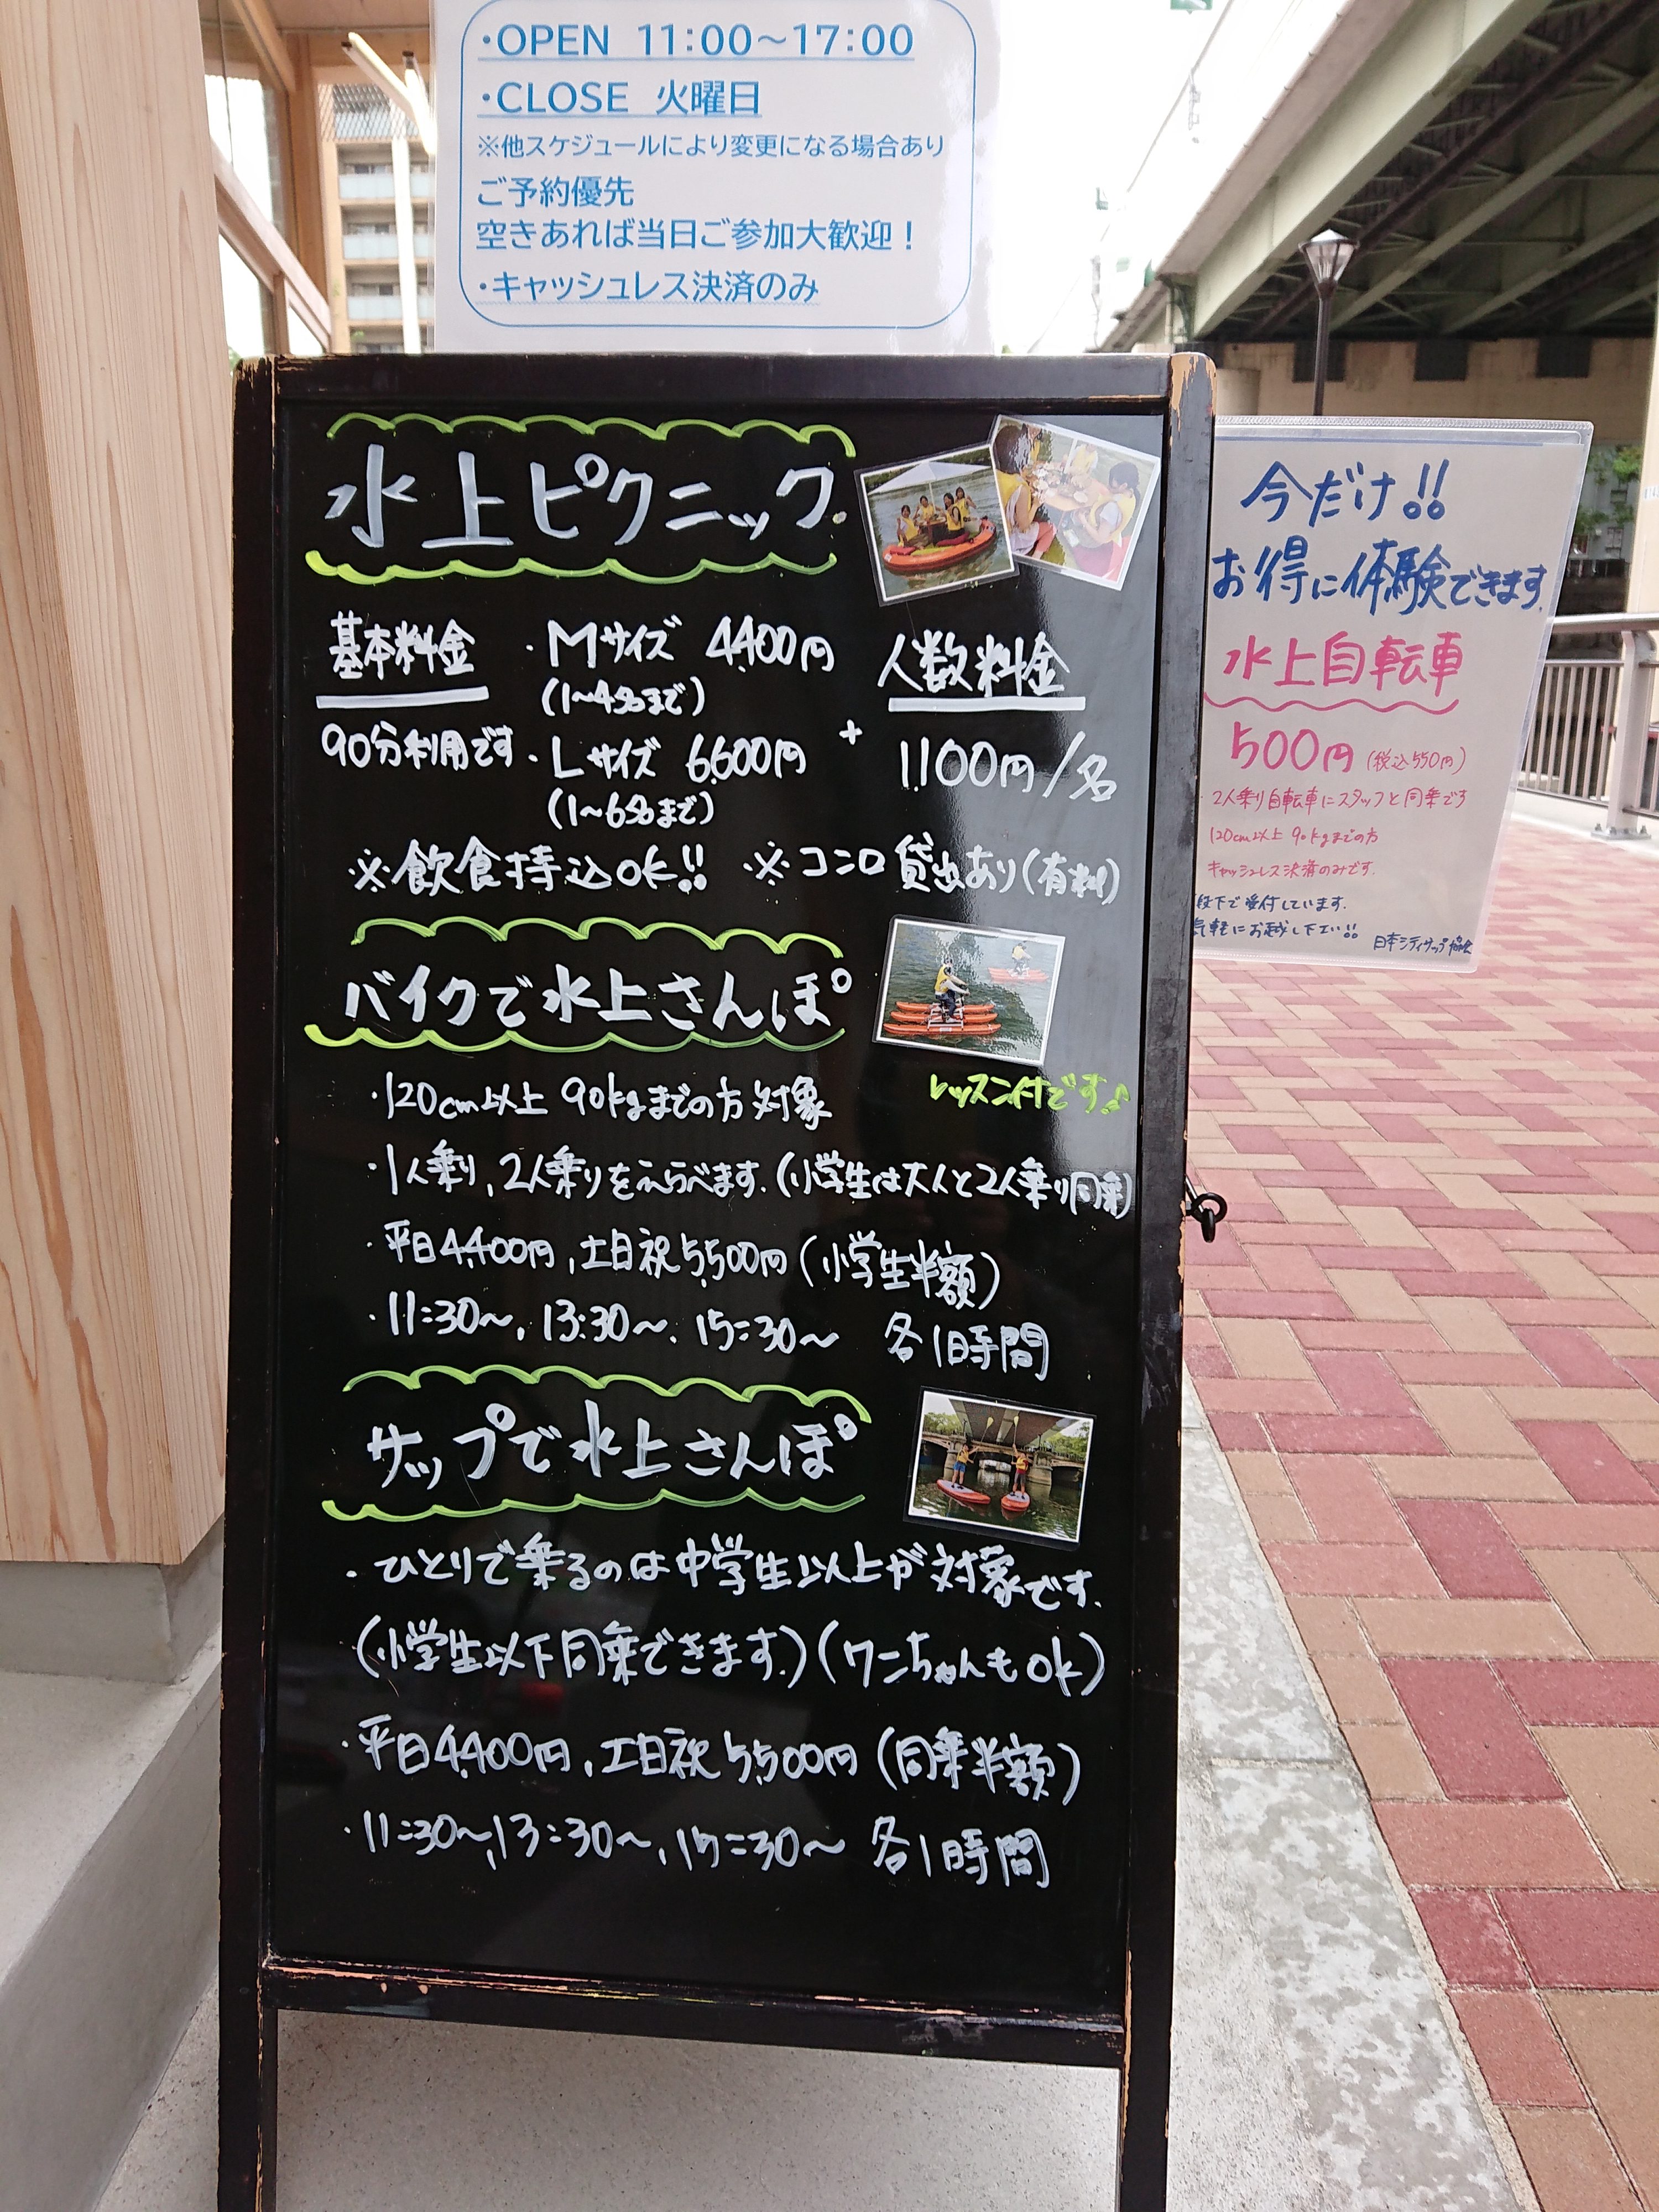 ・OPEN 11:00～17:00
・CLOSE 火曜日
※他スケジュールにより変更になる場合あり
ご予約優先
空きあれば当日ご参加大歓迎！
・キャッシュレス決済のみ
水上ピクニック
基本料金 ・Mサイズ 4,400円
(1～4名まで)
90分利用です ・Lサイズ 6,600円
(1～6名まで)
+
人数料金
1,100円/名
※飲食持込OK!! ※コンロ貸出あり(有料)
バイクで水上さんぽ
レッスン付です♪
・120cm以上 90kgまでの方対象
・1人乗り、2人乗りをえらべます。(小学生は大人と2人乗り同乗)
・平日4,400円、土日祝5,500円(小学生半額)
・11:30～、13:30～、15:30～ 各1時間
サップで水上さんぽ
・ひとりで乗るのは中学生以上が対象です。
(小学生以下同乗できます。)(ワンちゃんもOK)
・平日4,400円、土日祝5,500円(同乗半額)
・11:30～、13:30～、15:30～ 各1時間
今だけ!!
お得に体験できます。
水上自転車
500円(税込550円)
2人乗り自転車にスタッフと同乗です
120cm以上 90kgまでの方
キャッシュレス決済のみです。
段下で受付しています。
気軽にお越し下さい!!
日本シティサップ協会